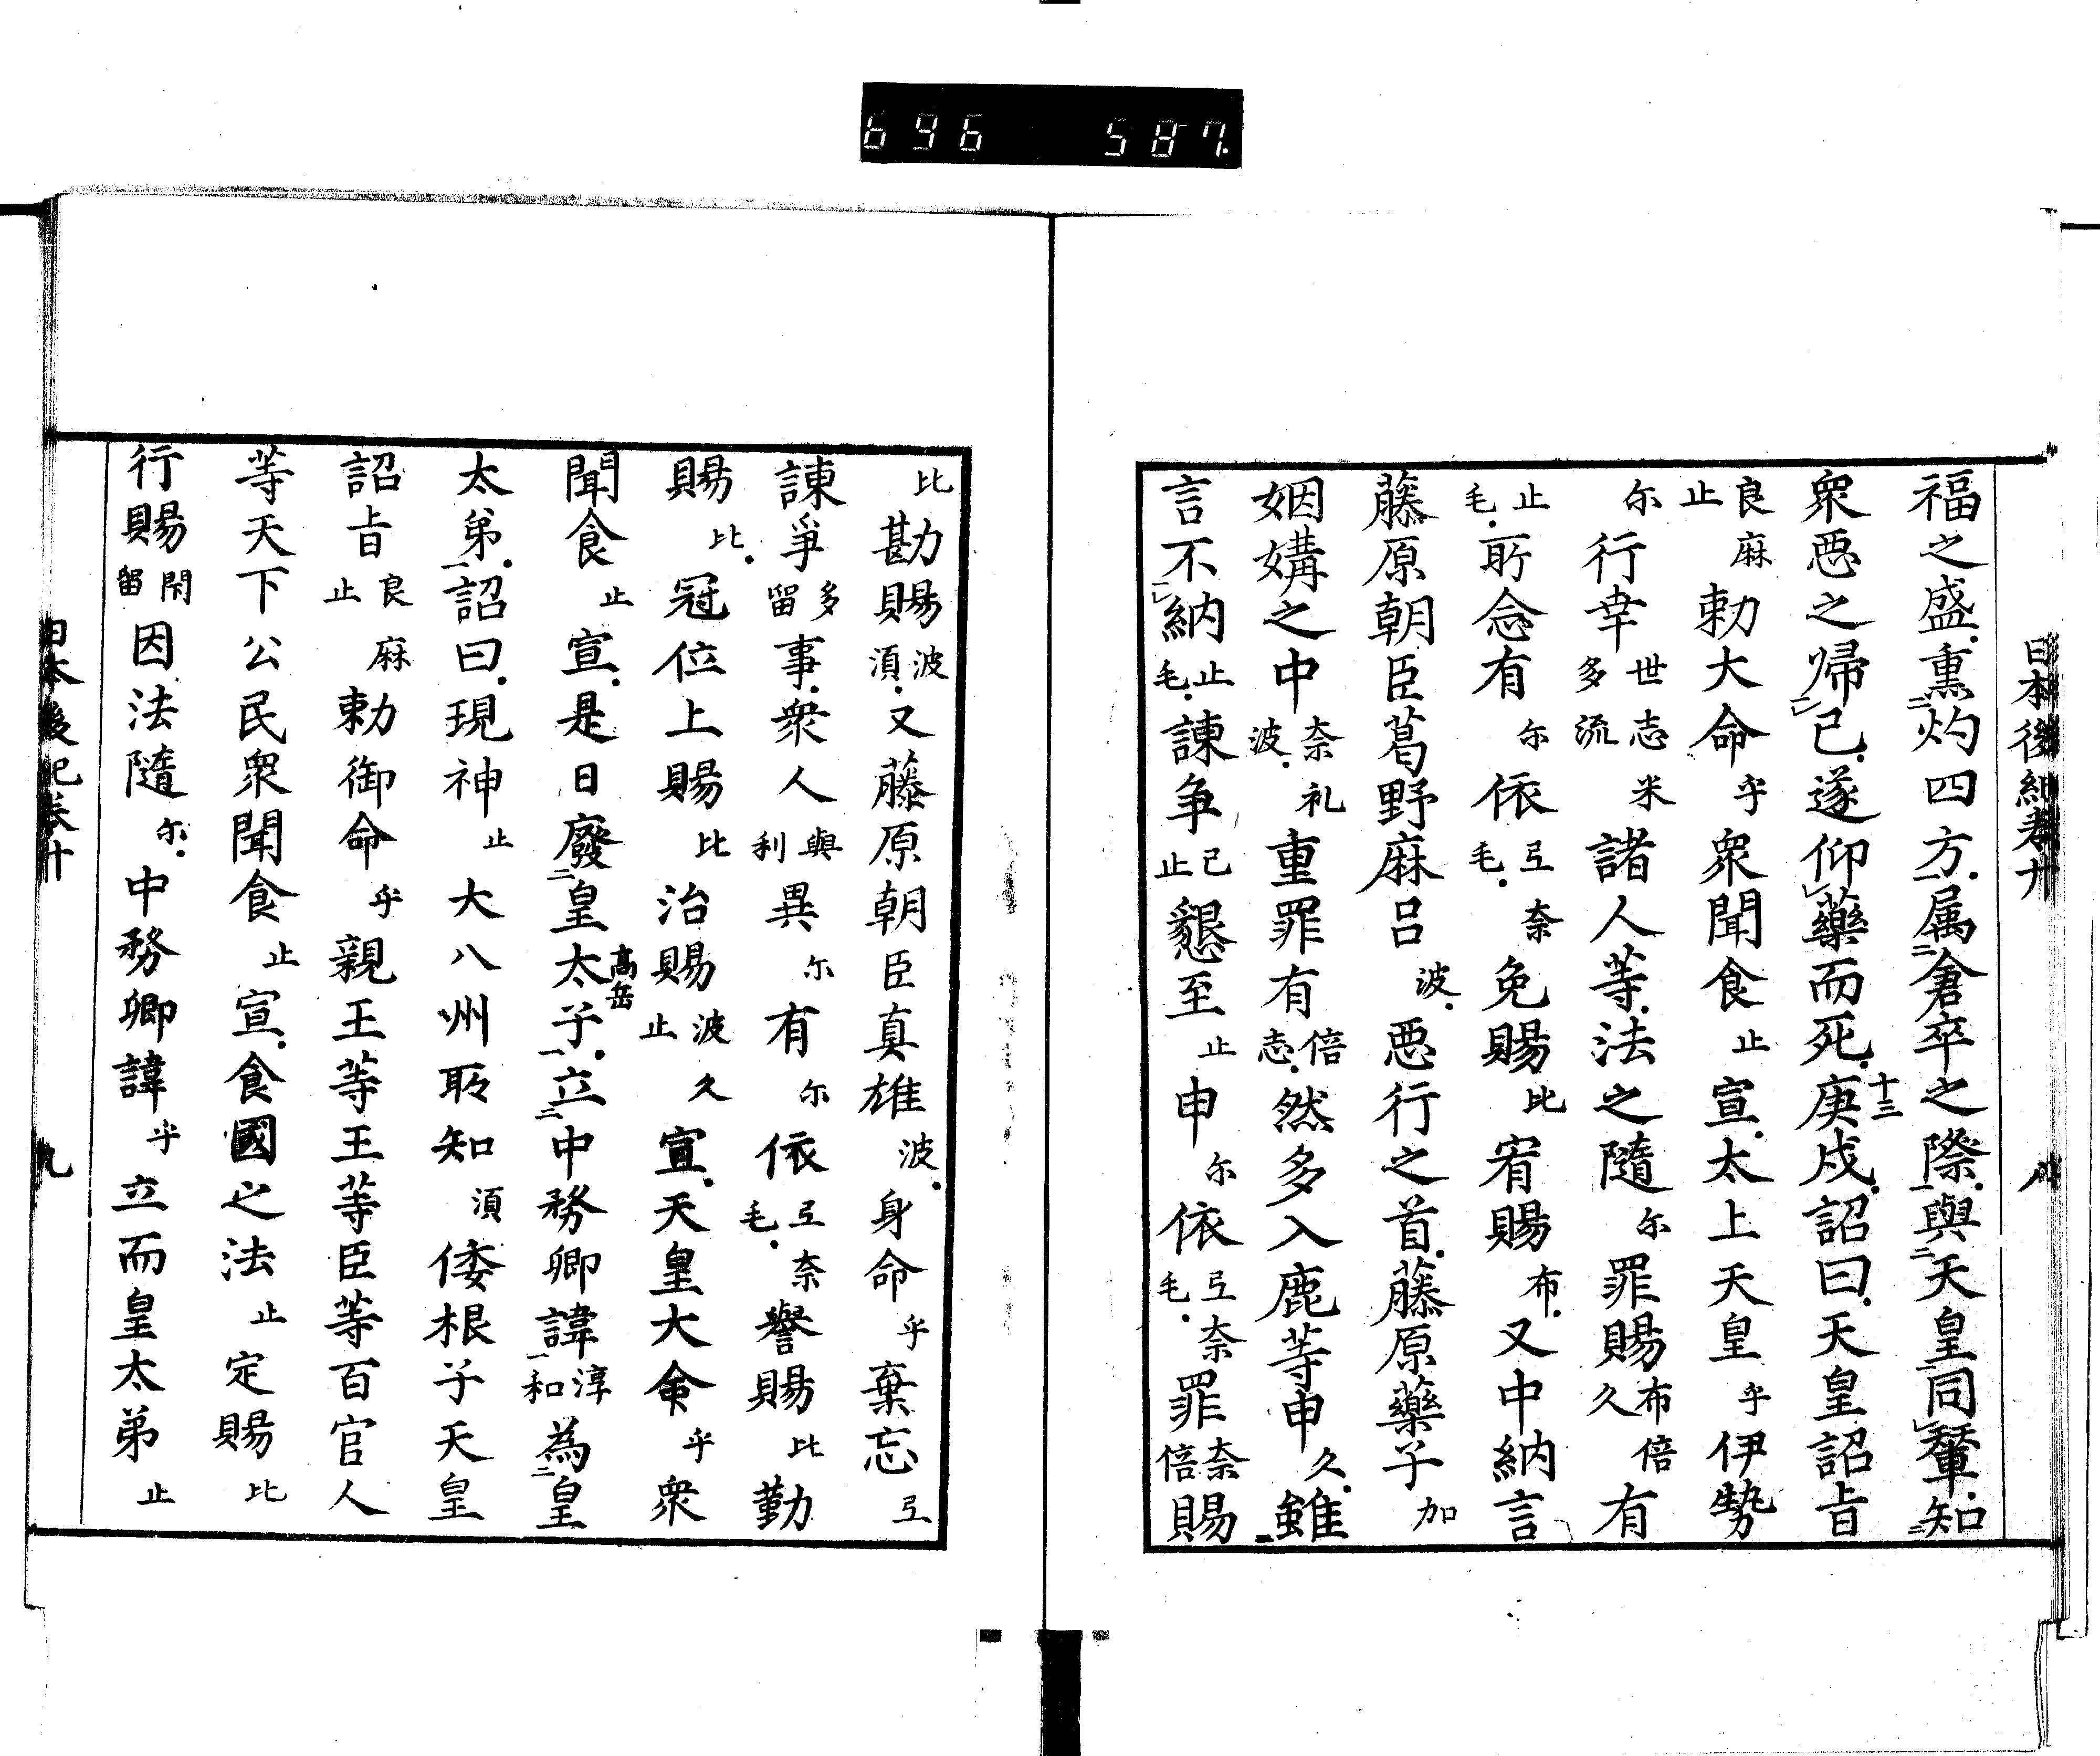 696 587
日本後紀卷十 八
福之盛熏灼四方属倉卒之際與天皇同輦知
衆惡之帰己遂仰藥而死十三庚戌詔曰天皇詔旨
良麻止勅大命乎衆聞食止宣太上天皇乎伊勢
尓行幸世志米多流諸人等法之隨尓罪賜布倍久有
止毛所念有尓依弖奈毛免賜比宥賜布又中納言
藤原朝臣葛野麻呂波惡行之首藤原藥子加
姻媾之中奈礼波重罪有倍志然多入鹿等申久雖
言不納止毛諫争己止懇至止申尓依弖奈毛罪奈倍賜
比勘賜波須又藤原朝臣真雄波身命乎棄忘弖
諫爭多留事衆人與利異尓有尓依弖奈毛譽賜比勤
賜比冠位上賜比治賜波久止宣天皇大命乎衆
聞食止宣是日廢皇太子高岳立中務卿諱淳和為皇
太弟詔曰現神止大八州所知須倭根子天皇
詔旨良麻止勅御命乎親王等王等臣等百官人
等天下公民衆聞食止宣食國之法止定賜比
行賜閇留因法隨尓中務卿諱乎立而皇太弟止
日本後紀卷十 九